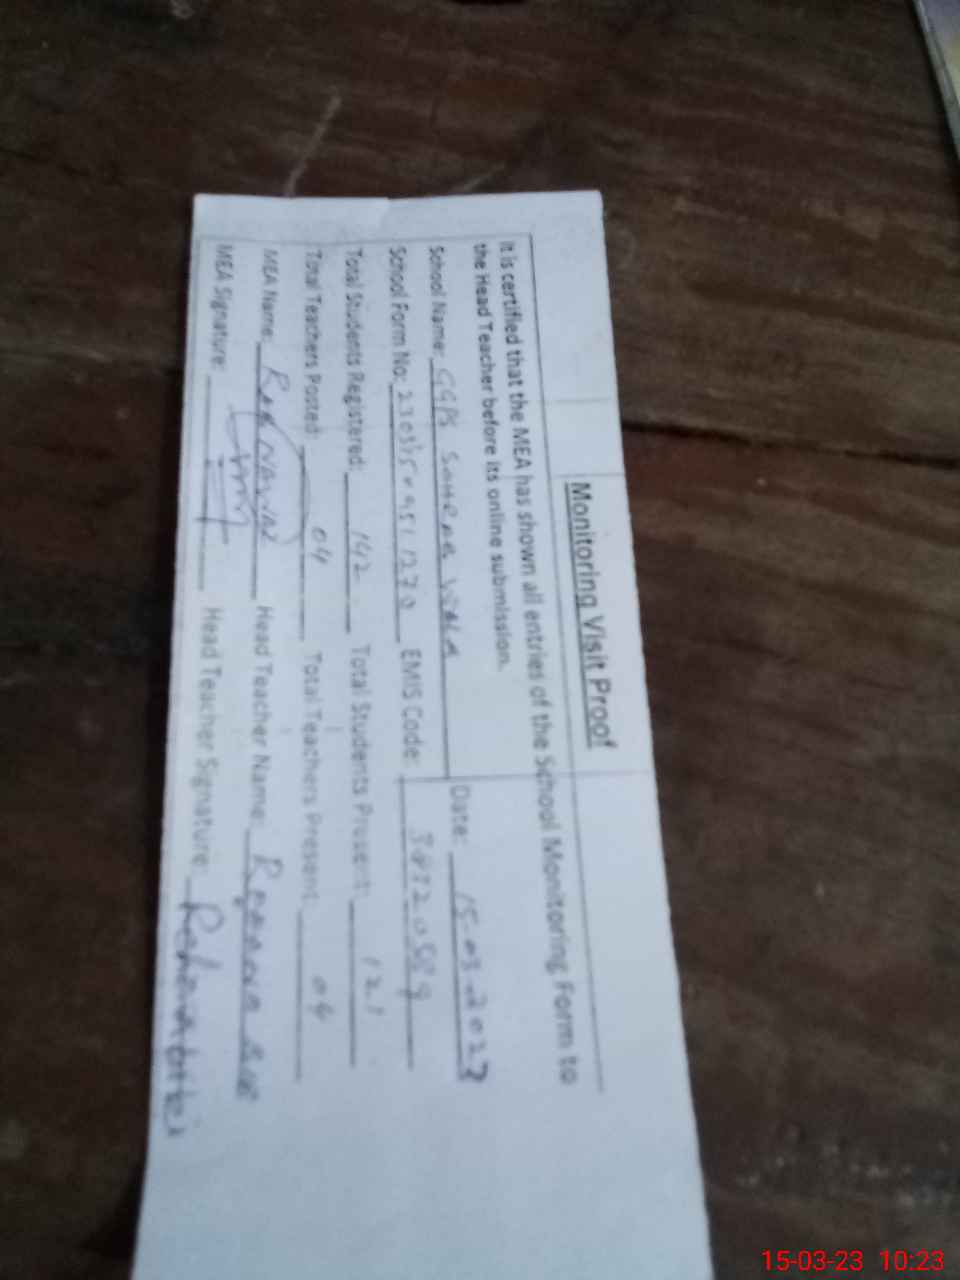 Monitoring Visit Proof
It is certified that the MEA has shown all entries of the School Monitoring Form to
the Head Teacher before its online submission.
School Name: GGPS WALA Date: 15-03-2023
School Form No: EMIS Code:
Total Students Registered: 142 Total Students Present: 121
Total Teachers Posted: 04 Total Teachers Present: 04
MEA Name: Rab Nawaz Head Teacher Name: Rehana
MEA Signature: Head Teacher Signature: Rehana
15-03-23 10:23